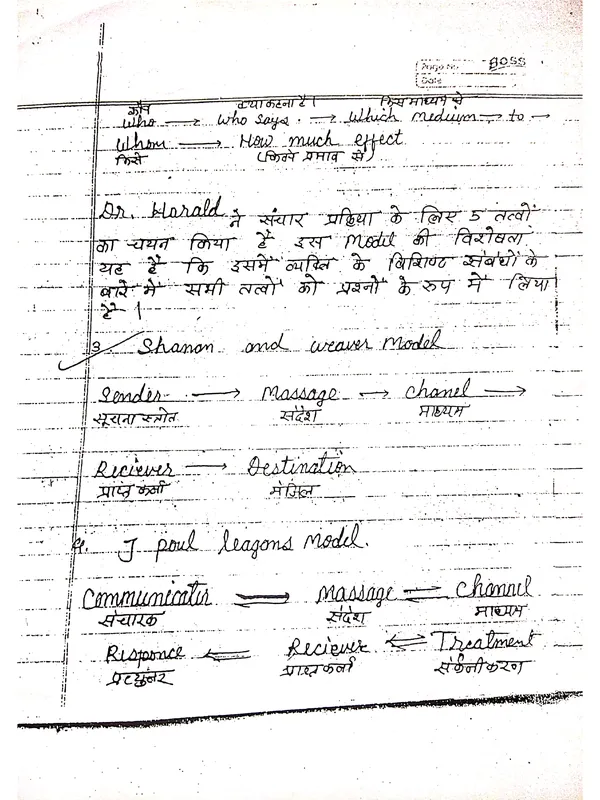 Page No.
BOSS
Date
कौन क्या कहता है। किस माध्यम से
Who → Who says → Which Medium → to →
Whom → How much effect
किसे (कितने प्रभाव से)
Dr. Harald ने संचार प्रक्रिया के लिए 5 तत्वों
का चयन किया है इस Model की विशेषता
यह है कि इसमें व्यक्ति के विशिष्ट संबंधों के
बारे में सभी तत्वों को प्रश्नों के रूप में लिया
है।
3. Shanan and weaver Model
Sender → Massage → Chanel →
सूचना स्त्रोत संदेश माध्यम
Reciever → Destination
प्राप्त कर्ता मंजिल
4. J poul leagons Model.
Communicatir ⇌ Massage ⇌ Channel
संचारक संदेश माध्यम
Responce ⇐ Reciever ⇐ Treatment
प्राप्तकर्ता